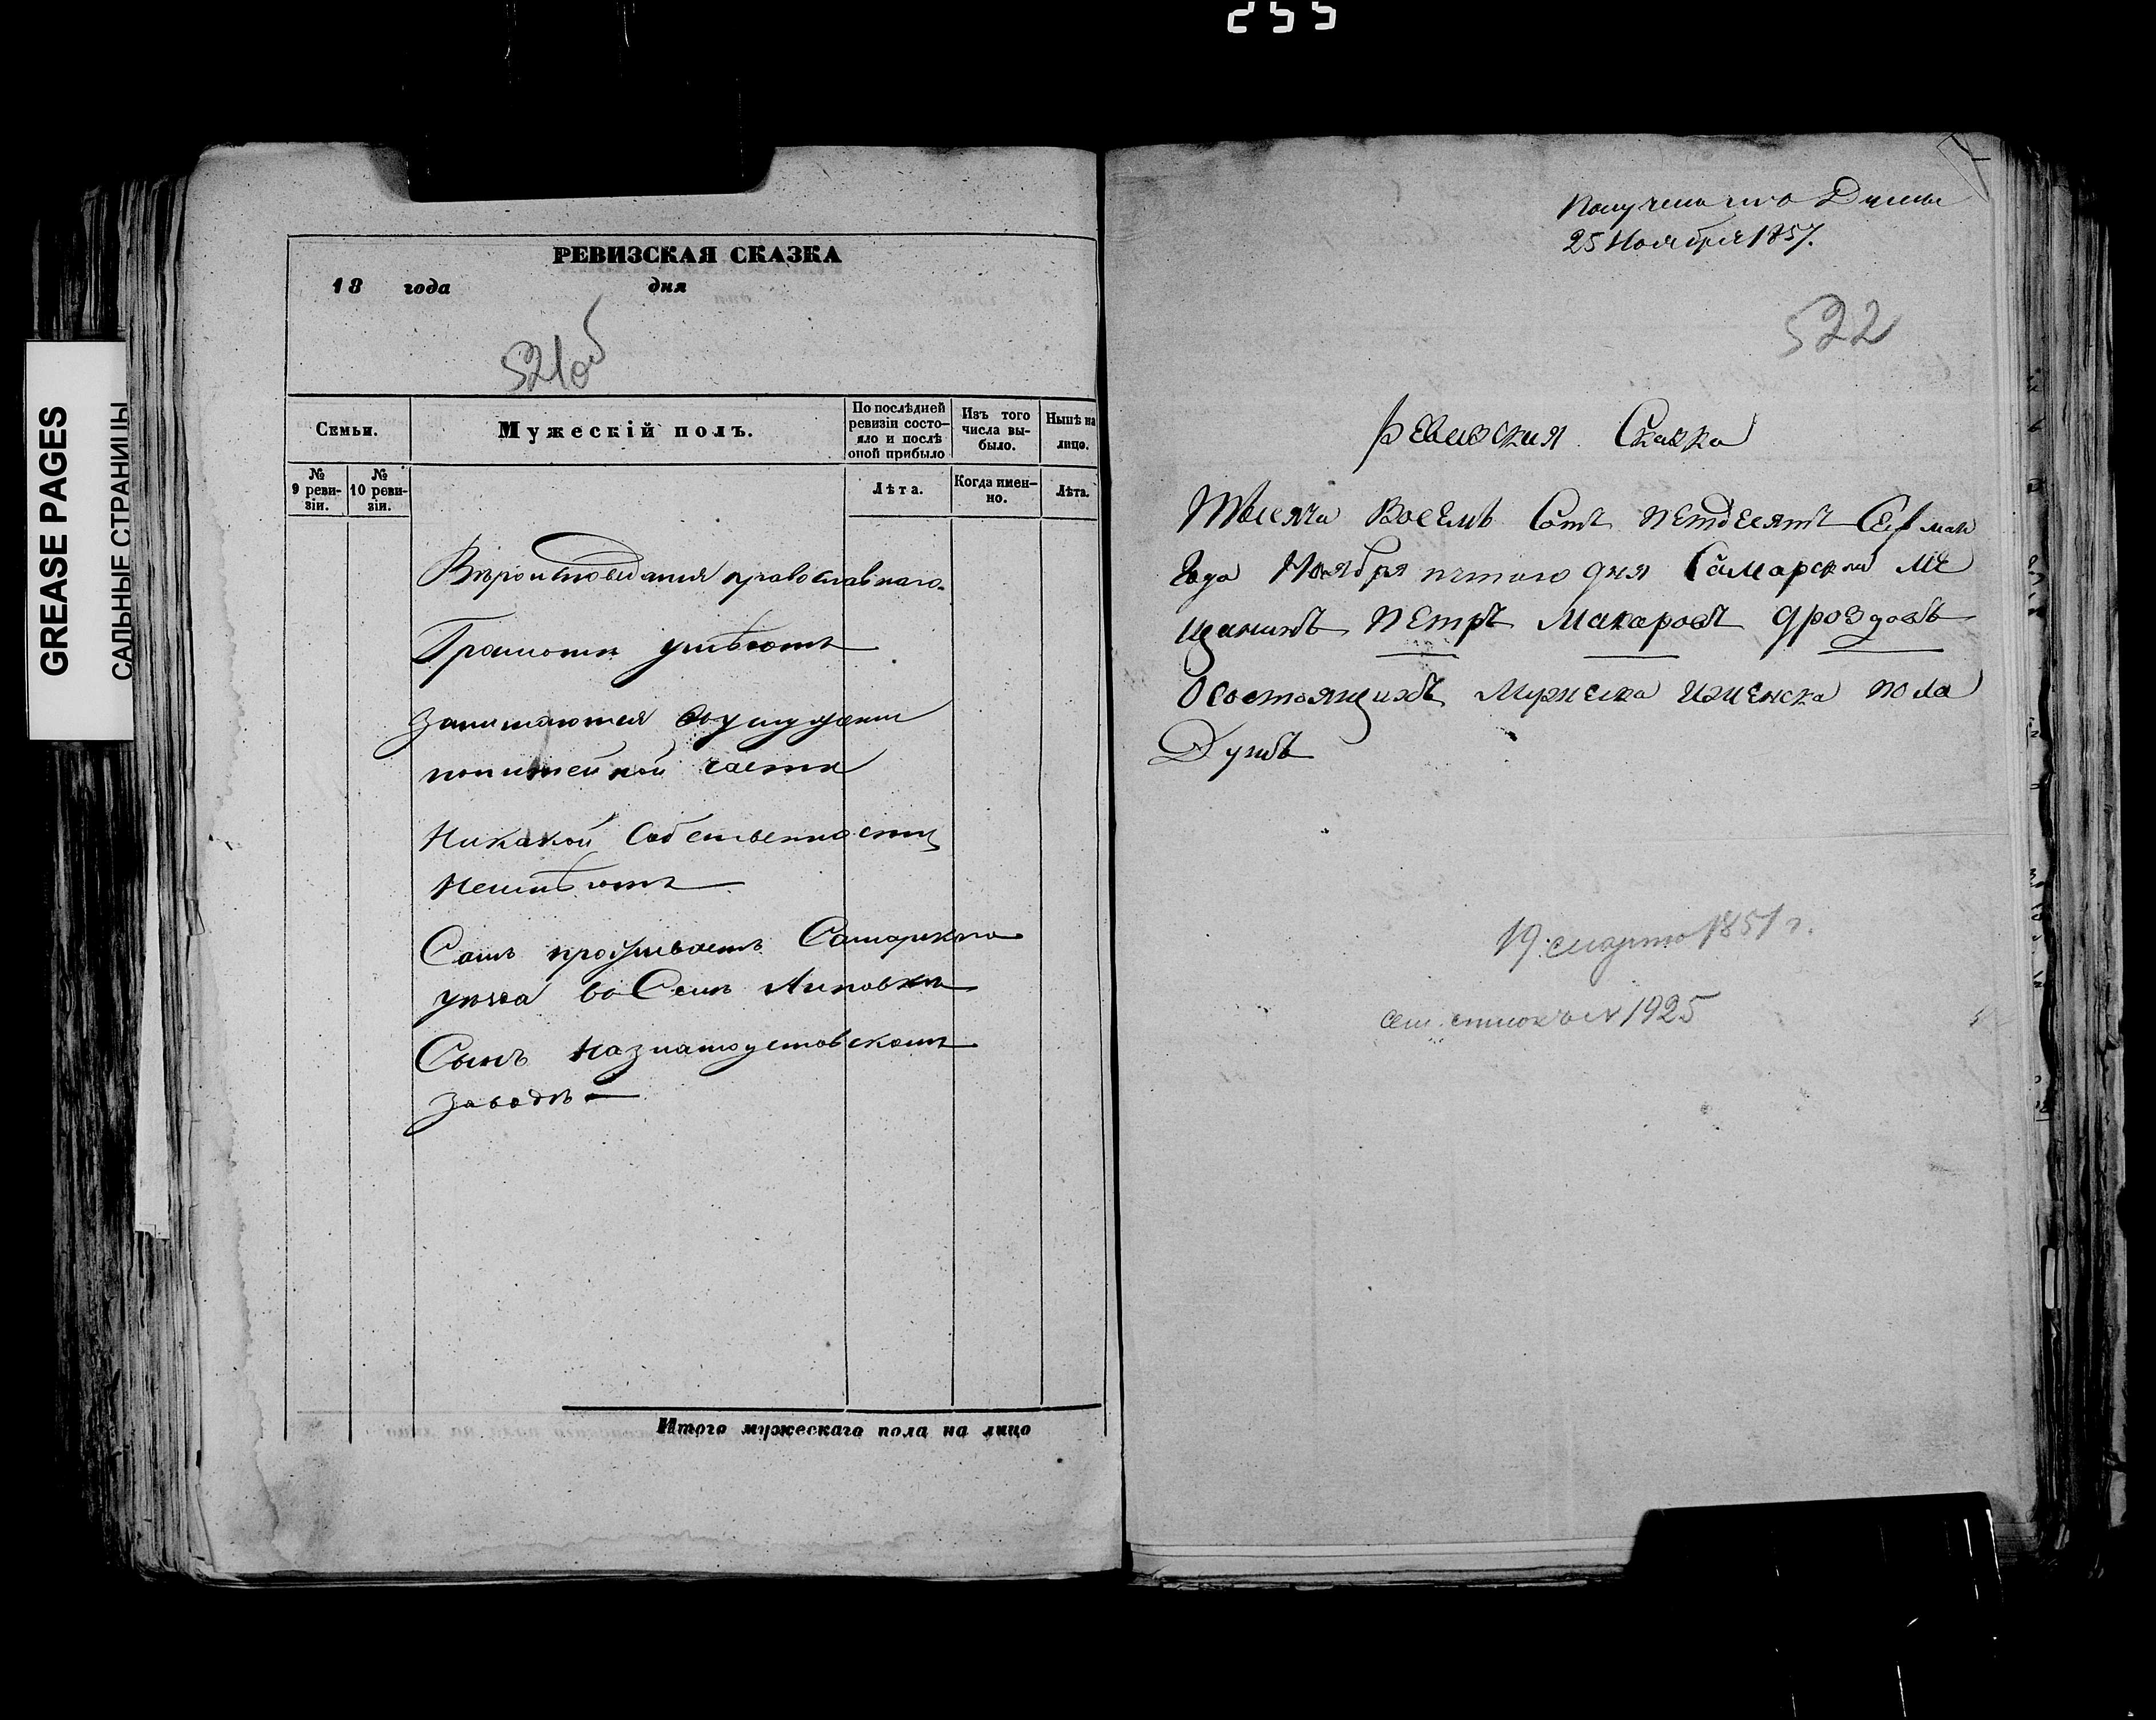 255
GREASE PAGES
САЛЬНЫЕ СТРАНИЦЫ
РЕВИЗСКАЯ СКАЗКА
18 года дня
521об
Семьи.
Мужескій полъ.
По послѣдней ревизіи состо-
яло и послѣ
оной прибыло
Изъ того
числа вы-
было.
Нынѣ на
лицо.
№
9 реви-
зіи.
№
10 реви-
зіи.
Лѣта.
Когда имен-
но.
Лѣта.
Вѣроисповеданія православнаго
Грамоти умѣютъ
Занимаются
питейной части
Никакой Собственности
Неимѣютъ
Самъ проживаетъ Самарскаго
уѣзда во Селѣ Липовкѣ
Сынъ Назлатоустовскомъ
заводѣ
Итого мужескаго пола на лицо
25 Ноября 1857.
522
Ревизская Сказка
Тысяча Восемь Сотъ петдесятъ
Года Ноября петого дня Самарской Ме
щанинъ Петръ Макаровъ Дроздовъ
Осостоящихъ Мужеска иженска пола
Душъ
19 марта 1851 г.
№ 1925